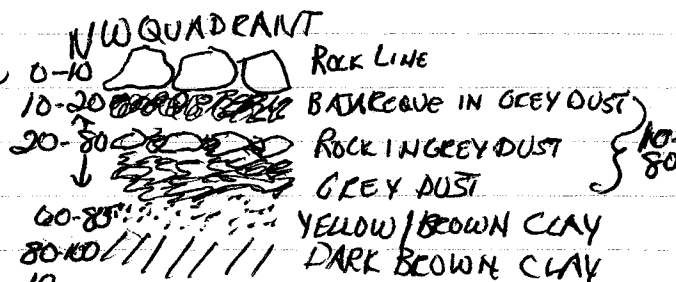 NW QUADRANT
0-10 ROCK LINE
10-20 BAJAREQUE IN GREY DUST
20-80 ROCK IN GREY DUST 10-80
GREY DUST
60-85 YELLOW/BROWN CLAY
80-100 DARK BROWN CLAY